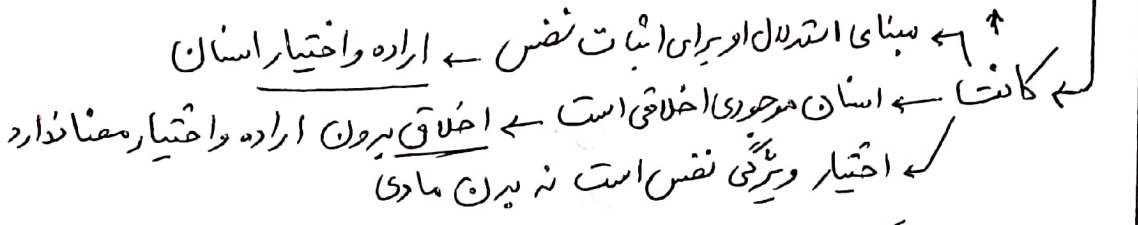 ← مبنای استدلال او برای اثبات نفس ← اراده و اختیار انسان
← کانت ← انسان موجودی اخلاقی است ← اخلاق بدون اراده و اختیار معنا ندارد
← اختیار ویژگی نفس است نه بدن مادی